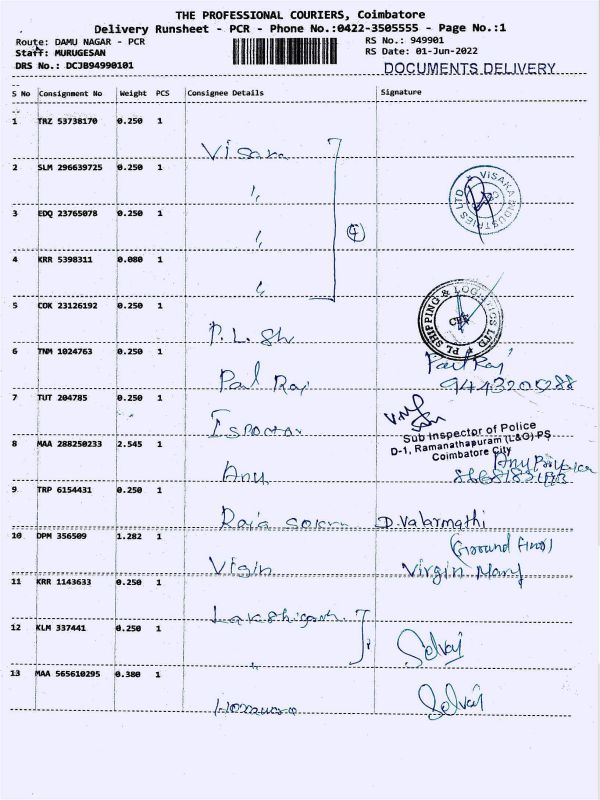 THE PROFESSIONAL COURIERS, Coimbatore
Delivery Runsheet - PCR - Phone No.:0422-3505555 - Page No.:1
Route: DAMU NAGAR - PCR
Staff: MURUGESAN
DRS No.: DCJB94990101
RS No.: 949901
RS Date: 01-Jun-2022
DOCUMENTS DELIVERY
S No Consignment No Weight PCS Consignee Details Signature
1 TRZ 53738170 0.250 1
Visaka
2 SLM 296639725 0.250 1
"
VISAKA INDUSTRIES LTD
3 EDQ 23765078 0.250 1
"
4
4 KRR 5398311 0.080 1
"
5 COK 23126192 0.250 1
P.L. Sh
PL SHIPPING & LOGISTICS LTD
CBE
6 TNM 1024763 0.250 1
Pal Raj
7 TUT 204785 0.250 1
Sub Inspector of Police
D-1, Ramanathapuram (L&O) PS
Coimbatore City
8 MAA 288250233 2.545 1
Anu
9 TRP 6154431 0.250 1
Raja
D.Valarmathi
10 DPM 356509 1.282 1
(Ground Floor)
Virgin
Virgin Mary
11 KRR 1143633 0.250 1
12 KLM 337441 0.250 1
"
Selvaj
13 MAA 565610295 0.380 1
Selvaj